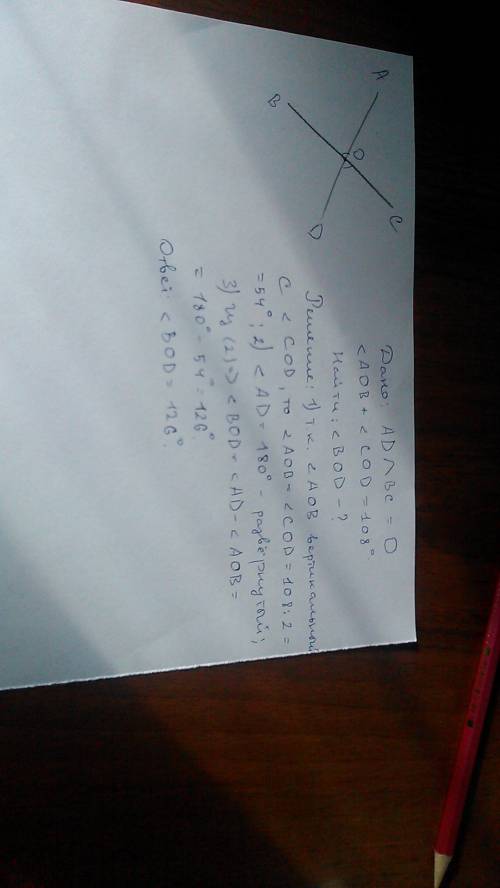 A
B
O
C
D
Дано: AD ∩ BC = O
<AOB + <COD = 108°.
Найти: <BOD - ?
Решение: 1) т.к. <AOB вертикальный
с <COD, то <AOB = <COD = 108 : 2 =
= 54°; 2) <AD = 180° - развёрнутый;
3) из (2) => <BOD = <AD - <AOB =
= 180° - 54° = 126°.
Ответ: <BOD = 126°.